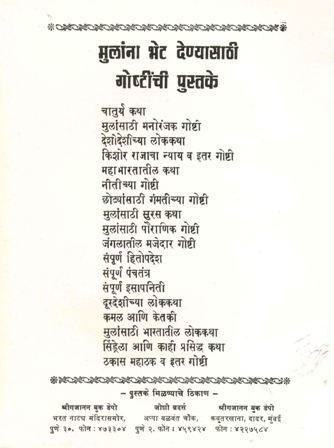 मुलांना भेट देण्यासाठी
गोष्टींची पुस्तके
चातुर्य कथा
मुलांसाठी मनोरंजक गोष्टी
देशोदेशीच्या लोककथा
किशोर राजाचा न्याय व इतर गोष्टी
महाभारतातील कथा
नीतीच्या गोष्टी
छोट्यांसाठी गंमतीच्या गोष्टी
मुलांसाठी सुरस कथा
मुलांसाठी पौराणिक गोष्टी
जंगलातील मजेदार गोष्टी
संपूर्ण हितोपदेश
संपूर्ण पंचतंत्र
संपूर्ण इसापनिती
दूरदेशीच्या लोककथा
कमल आणि केतकी
मुलांसाठी भारतातील लोककथा
सिंड्रेला आणि काही प्रसिद्ध कथा
ठकास महाठक व इतर गोष्टी
– पुस्तके मिळण्याचे ठिकाण –
श्रीगजानन बुक डेपो जोशी ब्रदर्स श्रीगजानन बुक डेपो
भरत नाट्य मंदिरासमोर, अप्पा बळवंत चौक, कबुतरखाना, दादर, मुंबई
पुणे ३०. फोन : ४७३३०४ पुणे २. फोन : ४५९४२४ फोन : ४२२७५८४